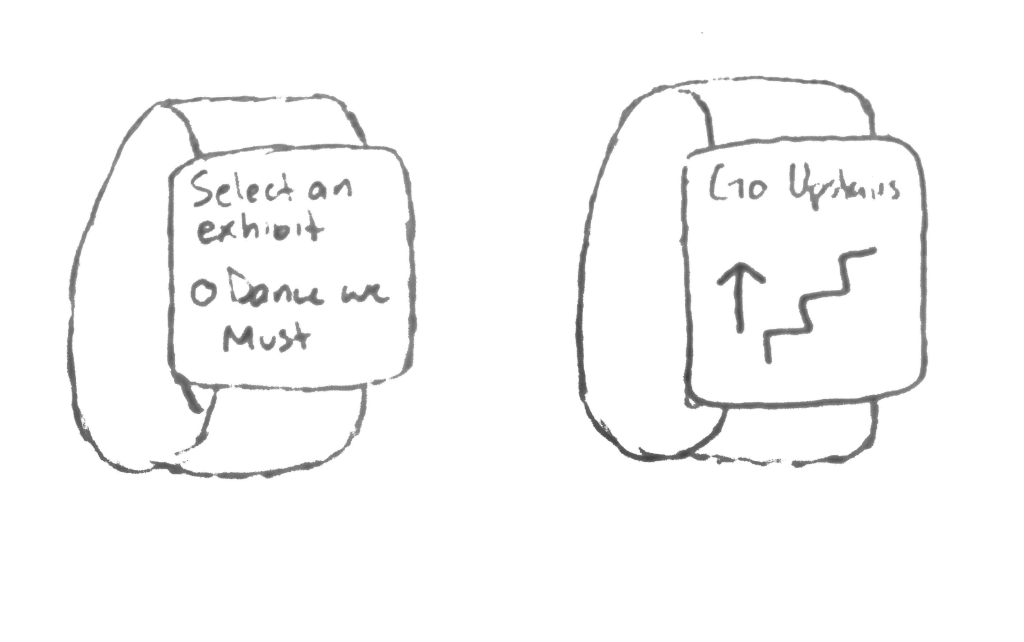 Select an
exhibit
O Dance we
Must
Go Upstairs